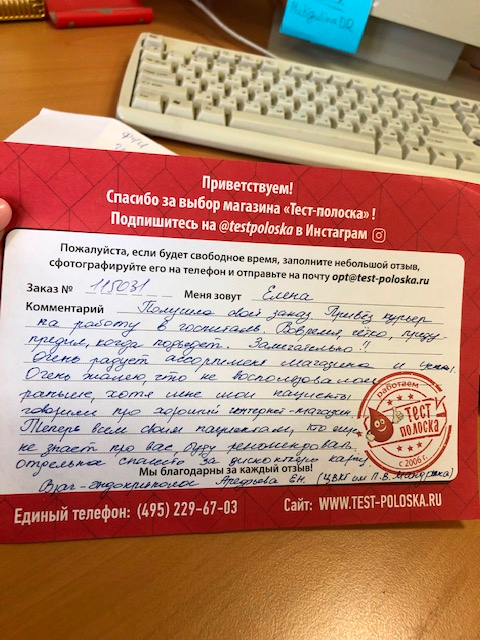 Приветствуем!
Спасибо за выбор магазина «Тест-полоска» !
Подпишитесь на @testpoloska в Инстаграм
Пожалуйста, если будет свободное время, заполните небольшой отзыв,
сфотографируйте его на телефон и отправьте на почту opt@test-poloska.ru
Заказ № 115031 Меня зовут Елена
Комментарий Получила свой заказ. Привёз курьер
на работу в госпиталь. Вовремя, чётко, преду-
предил, когда подъедет. Замечательно!!
Очень радует ассортимент магазина и цены.
Очень жалею, что не воспользовалась
раньше, хотя мне мои пациенты
говорили про хороший интернет-магазин.
Теперь всем своим пациентам, кто ещё
не знает про вас, буду рекомендовать.
отдельное спасибо за дисконтную карту.
Мы благодарны за каждый отзыв!
Врач-эндокринолог Арефьева Е.Н. (ЦВКГ им П.В. Мандрыка)
работаем
ТЕСТ
ПОЛОСКА
с 2006 г.
Единый телефон: (495) 229-67-03 Сайт: WWW.TEST-POLOSKA.RU